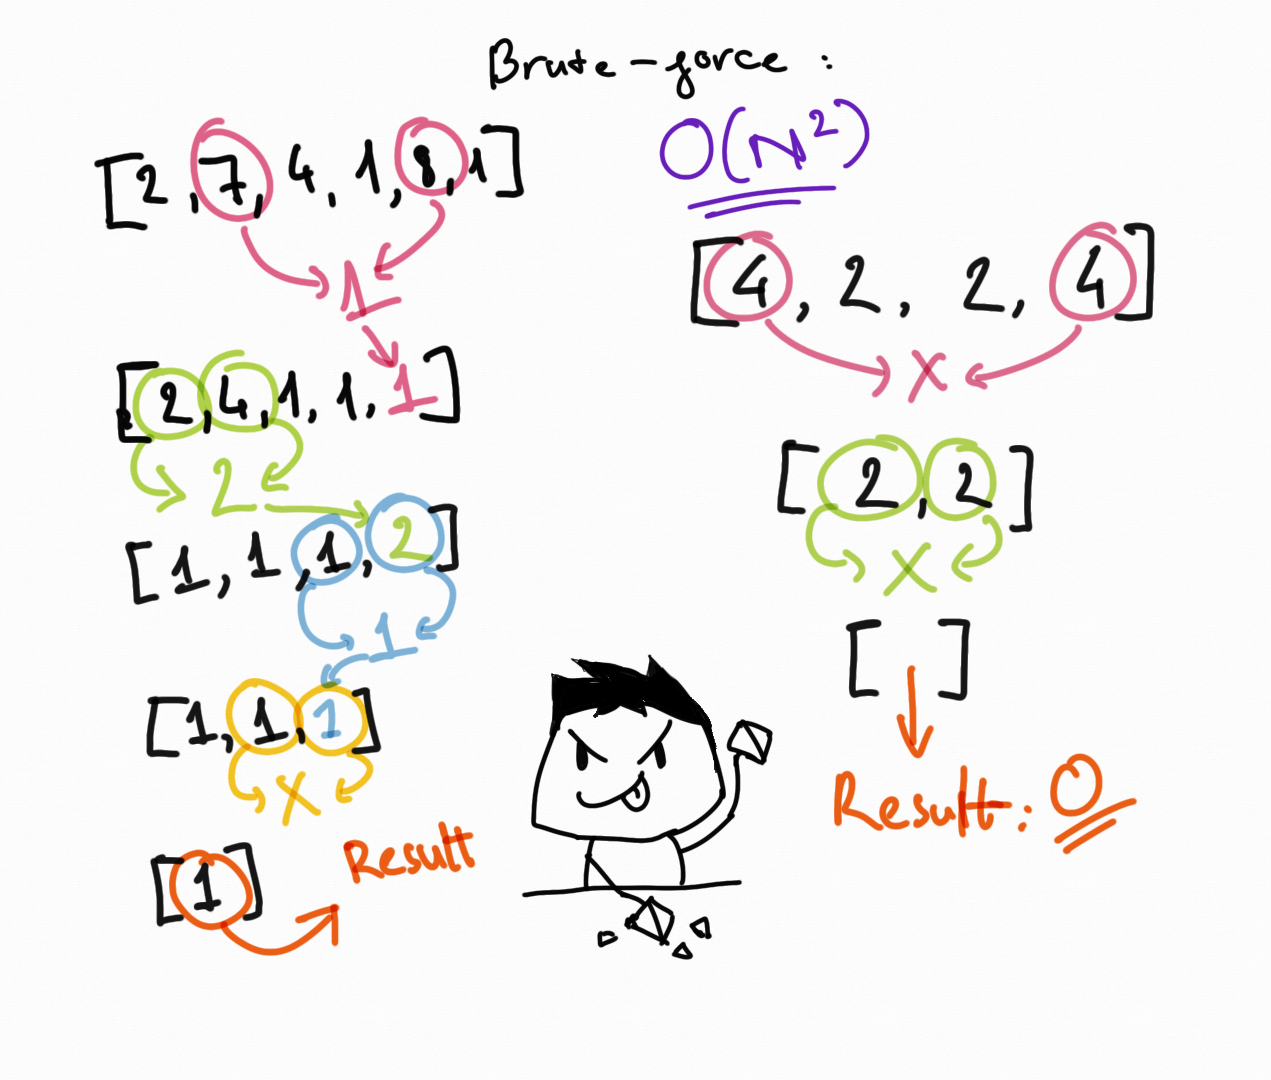 Brute-force :
O(N²)
[2, 7, 4, 1, 8, 1]
1
[2, 4, 1, 1, 1]
2
[1, 1, 1, 2]
1
[1, 1, 1]
X
[1]
Result
[4, 2, 2, 4]
X
[2, 2]
X
[ ]
Result: 0